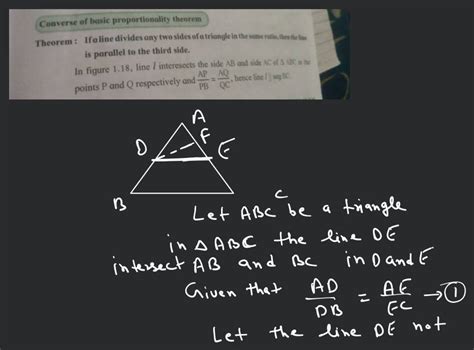 Converse of basic proportionality theorem
Theorem : If a line divides any two sides of a triangle in the same ratio, then the line
is parallel to the third side.
In figure 1.18, line l interesects the side AB and side AC of Δ ABC in the
points P and Q respectively and AP/PB = AQ/QC, hence line l || seg BC.
A
D
F
E
B
C
Let ABC be a triangle
in Δ ABC the line DE
intersect AB and BC in D and E
Given that AD/DB = AE/EC → ①
Let the line DE not